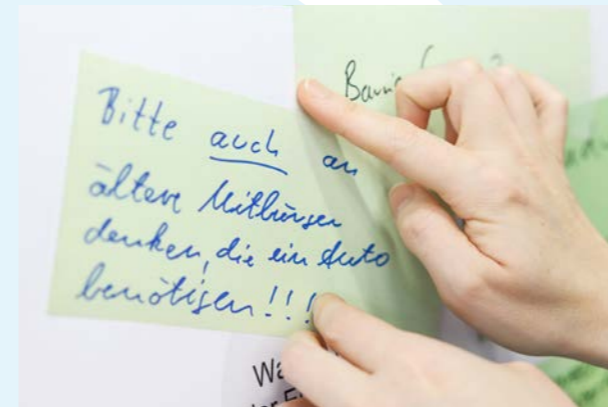 Bitte auch an
ältere Mitbürger
denken, die ein Auto
benötigen!!!